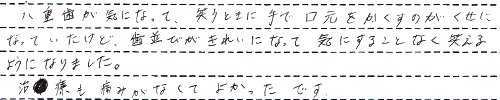 八重歯が気になって、笑うときに手で口元をかくすのがくせに
なっていたけど、歯並びがきれいになって気にすることなく笑える
ようになりました。
治療も痛みがなくてよかったです。